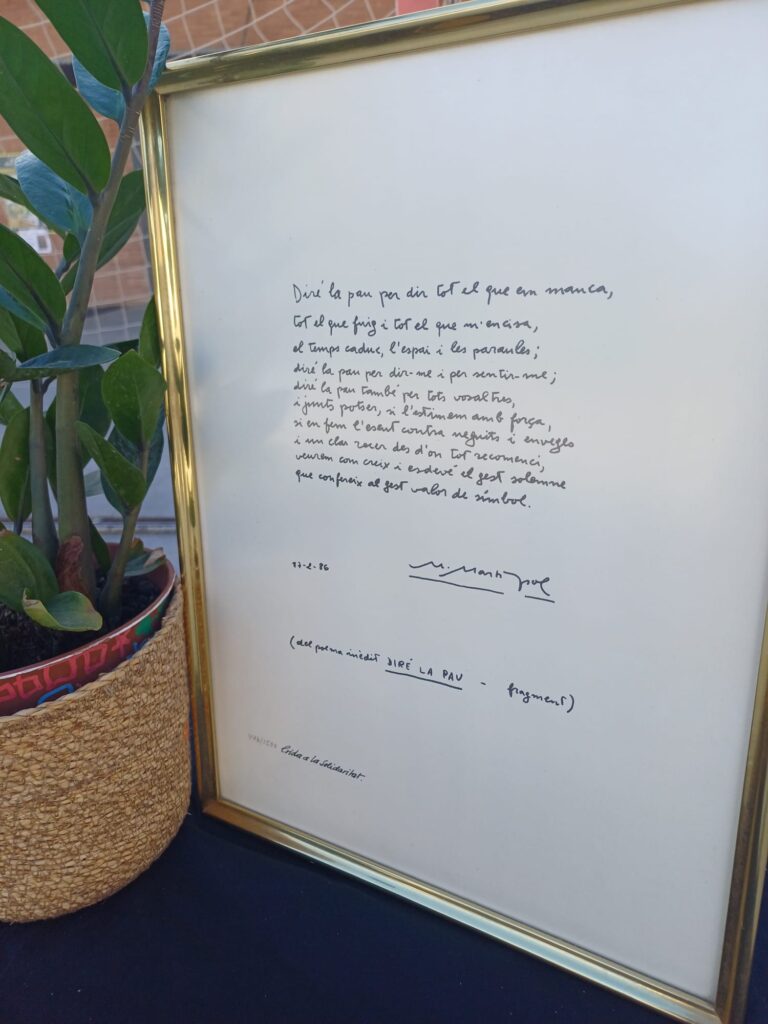 Diré la pau per dir tot el que em manca,
tot el que frig i tot el que m'encisa,
el temps caduc, l'espai i les paraules;
diré la pau per dir-me i per sentir-me;
diré la pau també per tots vosaltres,
i junts potser, si l'estimem amb força,
si en fem l'escut contra neguits i enveges
i un clar recer des d'on tot recomenci,
veurem com creix i esdevé el gest solemne
que confereix al gest valor de símbol.
17-2-86
M. Martí Pol
(del poema inèdit DIRÉ LA PAU - fragment)
Crida a la Solidaritat.